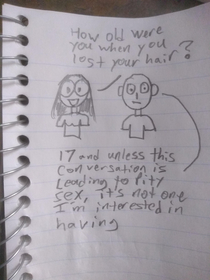 How old were
you when you
lost your hair?
17 and unless this
conversation is
leading to pity
sex, it's not one
I'm interested in
having